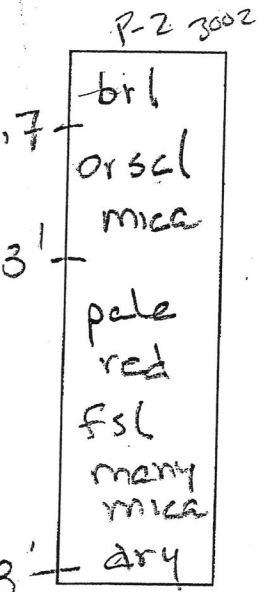 P-2 3002
brl
.7
orscl
mica
3'
pale
red
fsl
many
mica
dry
8'